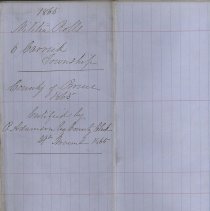 1865
Militia Rolls
Carrick
Township
County of Bruce
1865
Certified by
P. Adamson County Clerk
November 1865